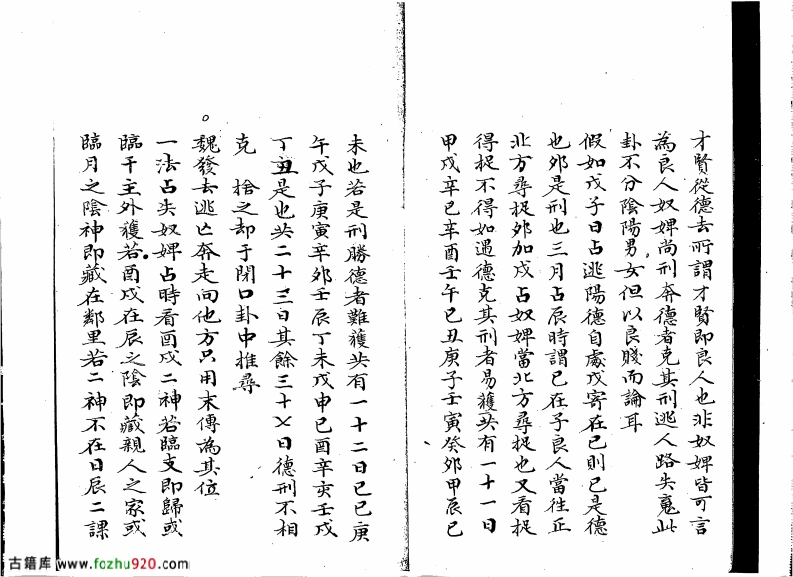 才賢從德去所謂才賢即良人也非奴婢皆可言
為良人奴婢尚刑奔德者克其刑逃人路失寬此
卦不分陰陽男女但以良賤而論耳
假如戊子日占逃陽德自處戊寄在巳則巳是德
也夘是刑也三月占辰時謂巳在子良人當徃正
北方尋捉夘加戌占奴婢當北方尋捉也又看捉
得捉不得如遇德克其刑者易獲共有一十一日
甲戌辛巳辛酉壬午己丑庚子壬寅癸夘甲辰己
未也若是刑勝德者難獲共有一十二日己巳庚
午戊子庚寅辛夘壬辰丁未戊申己酉辛亥壬戌
丁丑是也共二十三日其餘三十七日德刑不相
克 捨之却于閉口卦中推尋
魏發去逃亡奔走向他方只用末傳為其位
一法占失奴婢占時看酉戌二神若臨支即歸或
臨干主外獲若酉戌在辰之陰即藏親人之家或
臨月之陰神即藏在鄰里若二神不在日辰二課
古籍库 www.fozhu920.com